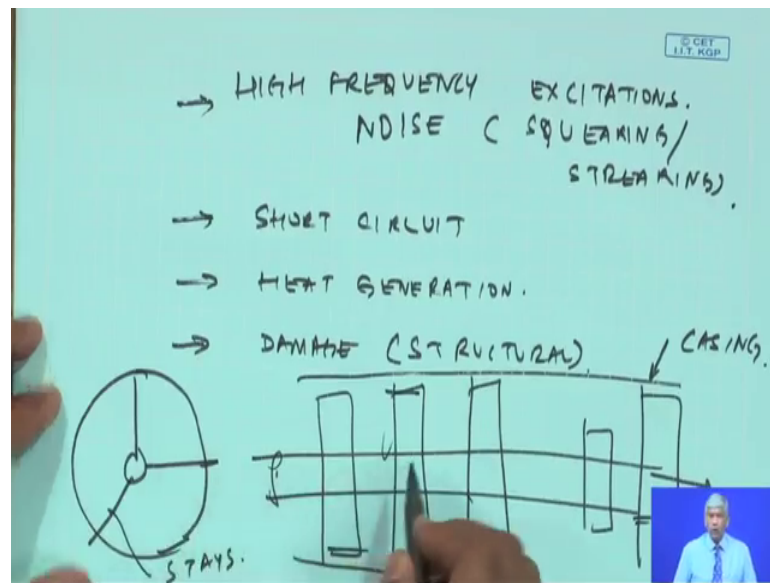 © CET
I.I.T. KGP
→ HIGH FREQUENCY EXCITATIONS.
NOISE ( SQUEAKING /
STREAKING).
→ SHORT CIRCUIT
→ HEAT GENERATION.
→ DAMAGE (STRUCTURAL)
CASING.
STAYS.